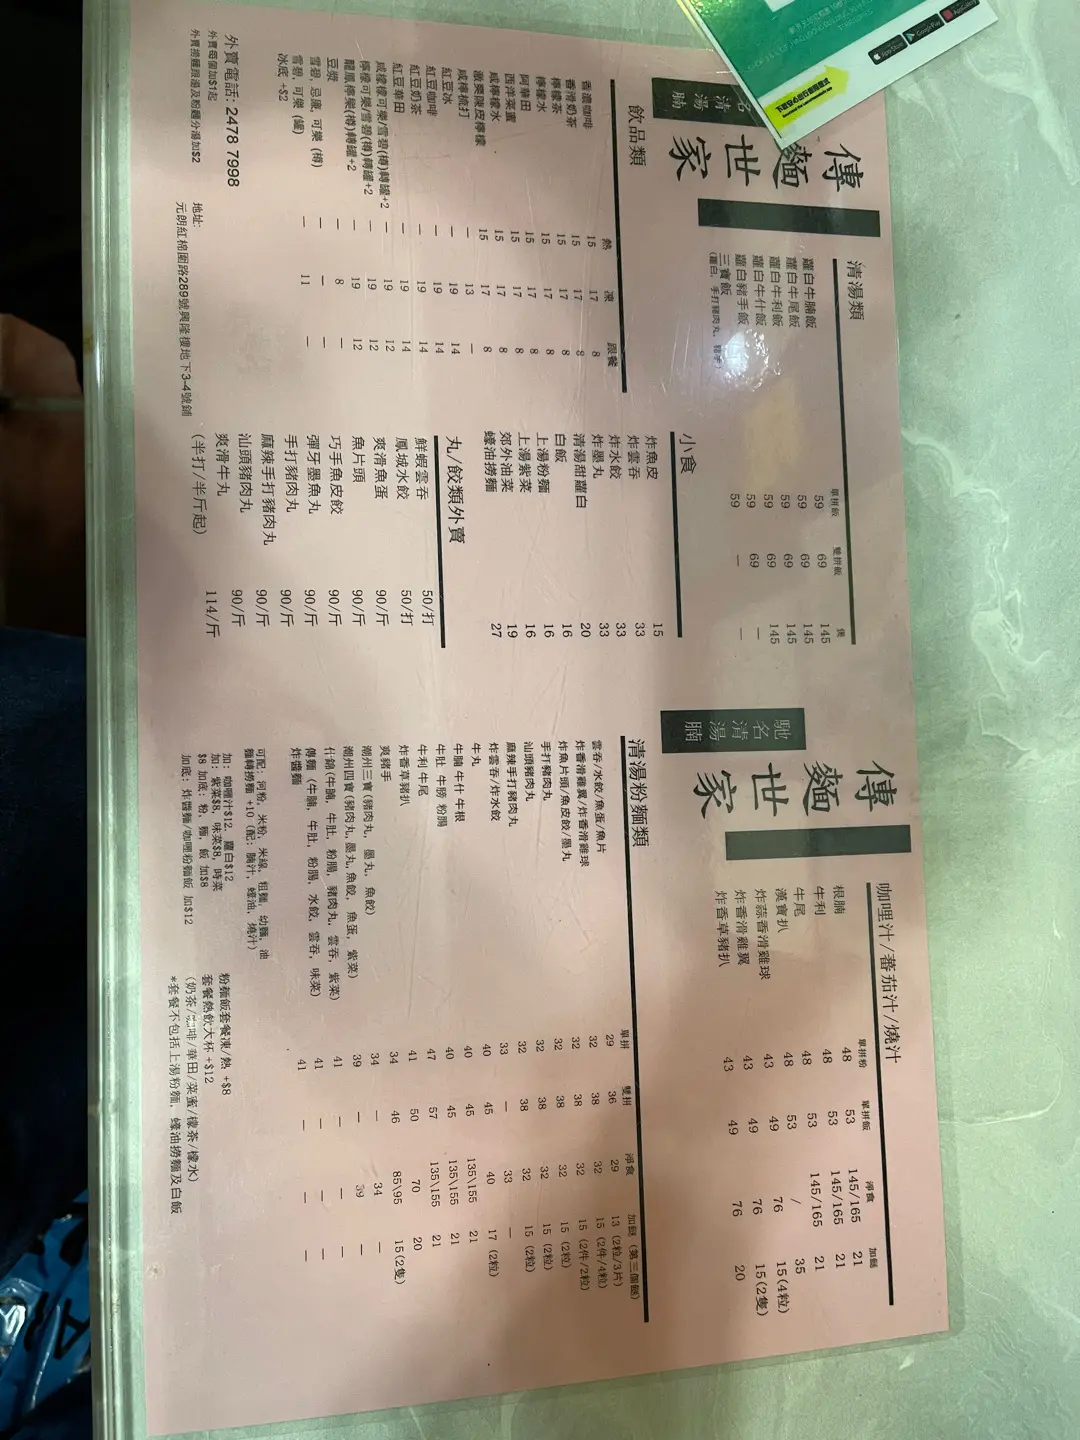 名清湯腩
傳麵世家
清湯類
單拼飯 雙拼飯 煲
蘿白牛腩飯 59 69 145
蘿白牛尾飯 59 69 145
蘿白牛利飯 59 69 145
蘿白牛什飯 59 69 145
蘿白豬手飯 59 69 —
三寶飯 59 — —
(蘿白, 手打豬肉丸, 豬手)
飲品類
熱 凍 跟餐
香濃咖啡 15 17 8
香滑奶茶 15 17 8
檸檬茶 15 17 8
檸檬水 15 17 8
阿華田 15 17 8
西洋菜蜜 15 17 8
咸檸檬水 15 17 8
陳皮檸檬 15 17 8
咸檸梳打 — 13 —
紅豆冰 — 19 14
紅豆咖啡 — 19 14
紅豆奶茶 — 19 14
紅豆華田 — 19 14
咸檸檬可樂/雪碧(樽)轉罐+2 — 19 12
檸檬可樂/雪碧(樽)轉罐+2 — 19 12
龍鳳檸樂(樽)轉罐+2 — 19 12
豆漿 — 8 —
雪碧, 忌廉, 可樂 (樽) — — —
雪碧, 可樂 (罐) — 11 —
冰底 +$2
小食
炸魚皮 15
炸雲吞 33
炸水餃 33
炸墨丸 33
清湯甜蘿白 20
白飯 16
上湯粉麵 16
上湯紫菜 16
郊外油菜 19
蠔油撈麵 27
丸/餃類外賣
鮮蝦雲吞 50/打
鳳城水餃 50/打
爽滑魚蛋 90/斤
魚片頭 90/斤
巧手魚皮餃 90/斤
彈牙墨魚丸 90/斤
手打豬肉丸 90/斤
麻辣手打豬肉丸 90/斤
汕頭豬肉丸 90/斤
爽滑牛丸 114/斤
(半打/半斤起)
外賣電話: 2478 7998
外賣每個加$1起
外賣撈麵跟湯及粉麵分湯加$2
地址:
元朗紅棉圍路289號興隆樓地下3-4號鋪
馳名清湯腩
傳麵世家
咖哩汁/蕃茄汁/燒汁
單拼粉 單拼飯 淨食 加餸
根腩 48 53 145/165 21
牛利 48 53 145/165 21
牛尾 48 53 145/165 21
漢寶扒 48 53 / 35
炸蒜香滑雞球 43 49 76 15(4粒)
炸香滑雞翼 43 49 76 15(2隻)
炸香草豬扒 43 49 76 20
清湯粉麵類
單拼 雙拼 淨食 加餸 (第三個餸)
雲吞/水餃/魚蛋/魚片 29 36 29 13 (2粒/3片)
炸香滑雞翼/炸香滑雞球 32 38 32 15 (2件/4粒)
炸魚片頭/魚皮餃/墨丸 32 38 32 15 (2件/2粒)
手打豬肉丸 32 38 32 15 (2粒)
汕頭豬肉丸 32 38 32 15 (2粒)
麻辣手打豬肉丸 32 38 32 15 (2粒)
炸雲吞/炸水餃 33 — 33 —
牛丸 40 45 40 17 (2粒)
牛腩 牛什 牛根 40 45 135\155 21
牛肚 牛膀 粉腸 40 45 135\155 21
牛利 牛尾 47 57 135\155 21
炸香草豬扒 41 50 70 20
爽豬手 34 46 85\95 15(2隻)
潮州三寶 (豬肉丸, 墨丸, 魚餃) 34 — 34 —
潮州四寶 (豬肉丸,墨丸,魚餃, 魚蛋, 紫菜) 39 — 39 —
什錦(牛腩, 牛肚, 粉腸, 豬肉丸, 雲吞, 紫菜) 41 — — —
傳麵 (牛腩, 牛肚, 粉腸, 水餃, 雲吞, 味菜) 41 — — —
炸醬麵 41 — — —
可配: 河粉, 米粉, 米線, 粗麵, 幼麵, 油
麵轉撈麵 +10 (配: 腩汁, 蠔油, 燒汁)
加: 咖喱汁$12, 蘿白$12
加: 紫菜$8, 味菜$8, 時菜
$8 加底: 粉, 麵, 飯 加$8
加底: 炸醬麵/咖喱粉麵飯 加$12
粉麵飯套餐凍/熱 +$8
套餐熱飲大杯 +$12
(奶茶/咖啡/華田/菜蜜/檬茶/檬水)
*套餐不包括上湯粉麵, 蠔油撈麵及白飯
App Store
Google Play
AppGallery